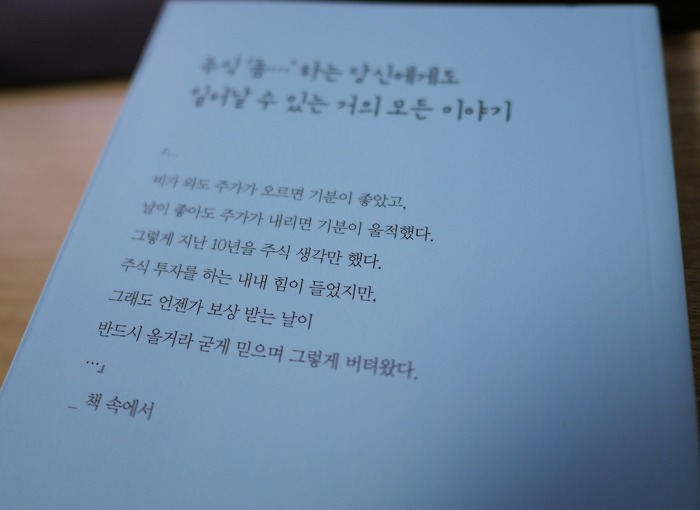 주식 '좀…' 하는 당신에게도
일어날 수 있는 거의 모든 이야기
『…
비가 와도 주가가 오르면 기분이 좋았고,
날이 좋아도 주가가 내리면 기분이 울적했다.
그렇게 지난 10년을 주식 생각만 했다.
주식 투자를 하는 내내 힘이 들었지만,
그래도 언젠가 보상 받는 날이
반드시 올거라 굳게 믿으며 그렇게 버텨왔다.
…』
_ 책 속에서